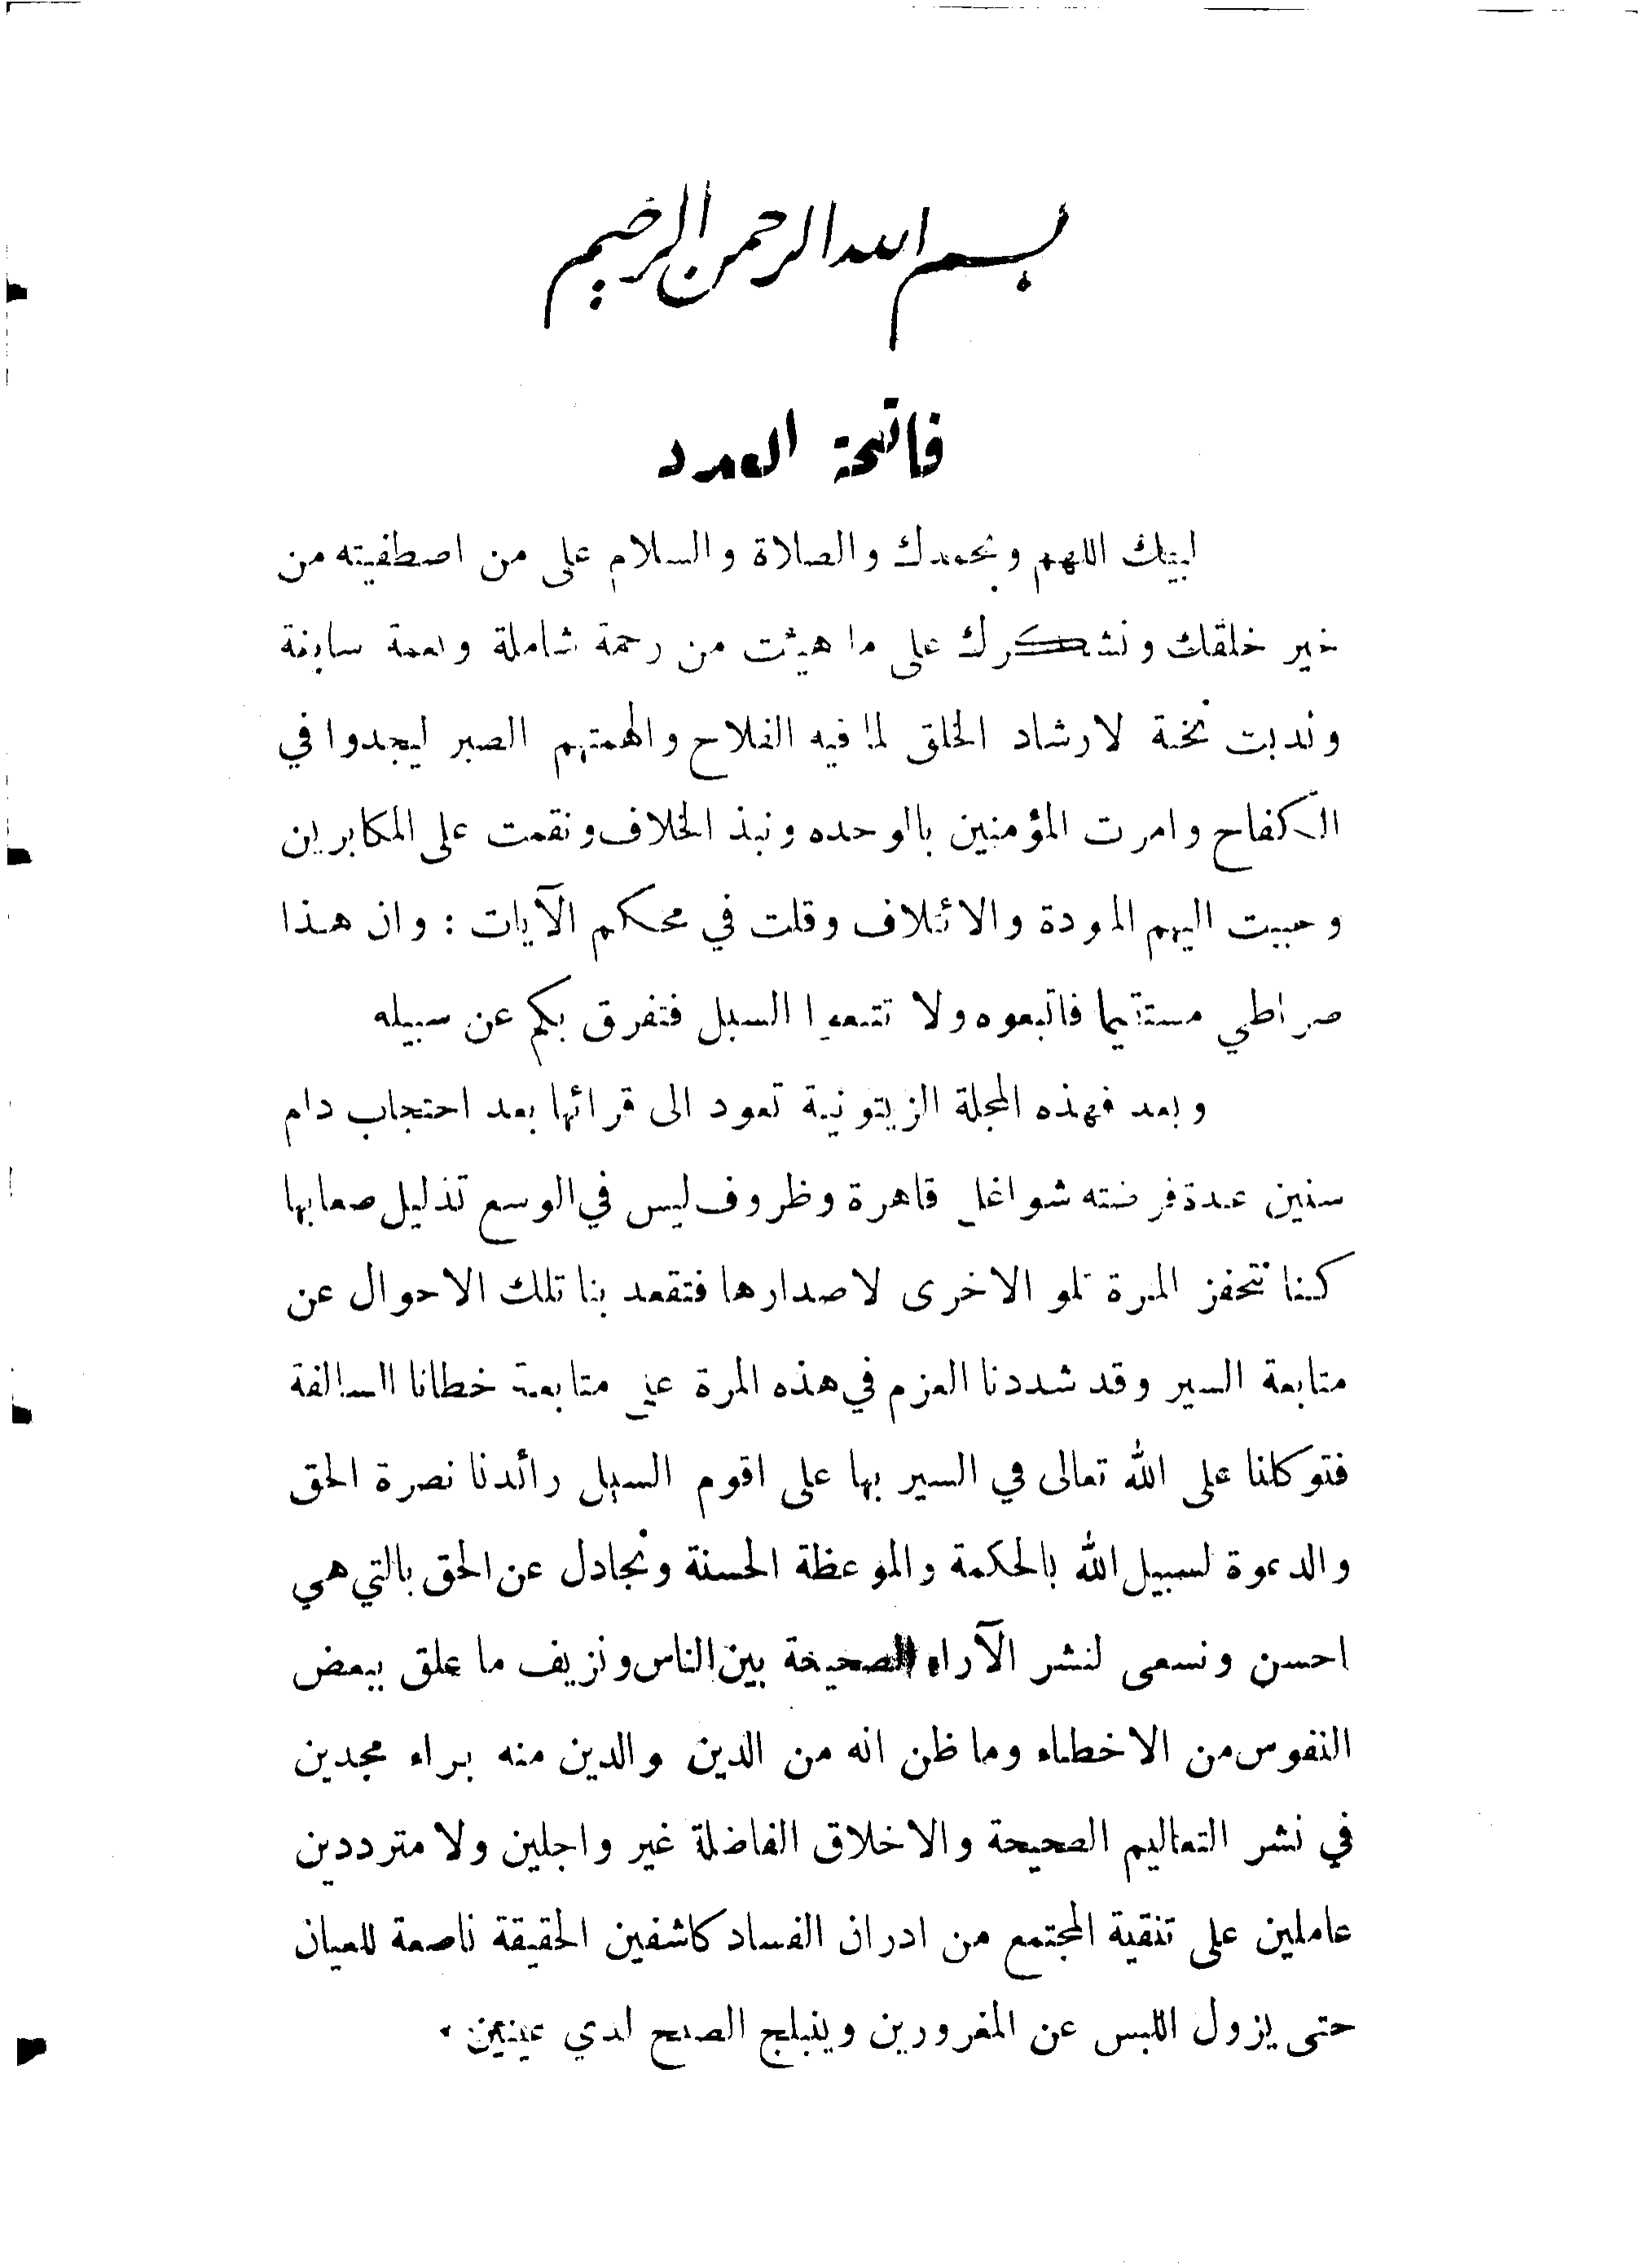 بسم الله الرحمن الرحيم
فاتحة العدد
لبيك اللهم وبحمدك والصلاة والسلام على من اصطفيته من
خير خلقك ونشكرك على ما هيئت من رحمة شاملة ونعمة سابغة
وندبت نخبة لارشاد الخلق لما فيه الفلاح والهمتهم الصبر ليجدوا في
الكفاح وامرت المؤمنين بالوحده ونبذ الخلاف ونقمت على المكابرين
وحببت اليهم المودة والائتلاف وقلت في محكم الآيات : وان هذا
صراطي مستقيما فاتبعوه ولا تتبعوا السبل فتفرق بكم عن سبيله
وبعد فهذه المجلة الزيتونية تعود الى قرائها بعد احتجاب دام
سنين عدة فرضته شواغل قاهرة وظروف ليس في الوسع تذليل صعابها
كنا نتحفز المرة تلو الاخرى لاصدارها فتقعد بنا تلك الاحوال عن
متابعة السير وقد شددنا العزم في هذه المرة على متابعة خطانا السالفة
فتوكلنا على الله تعالى في السير بها على اقوم السبل رائدنا نصرة الحق
والدعوة لسبيل الله بالحكمة والموعظة الحسنة ونجادل عن الحق بالتي هي
احسن ونسعى لنشر الآراء الصحيحة بين الناس ونزيف ما علق ببعض
النفوس من الاخطاء وما ظن انه من الدين والدين منه براء مجدين
في نشر التعاليم الصحيحة والاخلاق الفاضلة غير واجلين ولا مترددين
عاملين على تنقية المجتمع من ادران الفساد كاشفين الحقيقة ناصعة للعيان
حتى يزول اللبس عن المغرورين وينبلج الصبح لذي عينين .